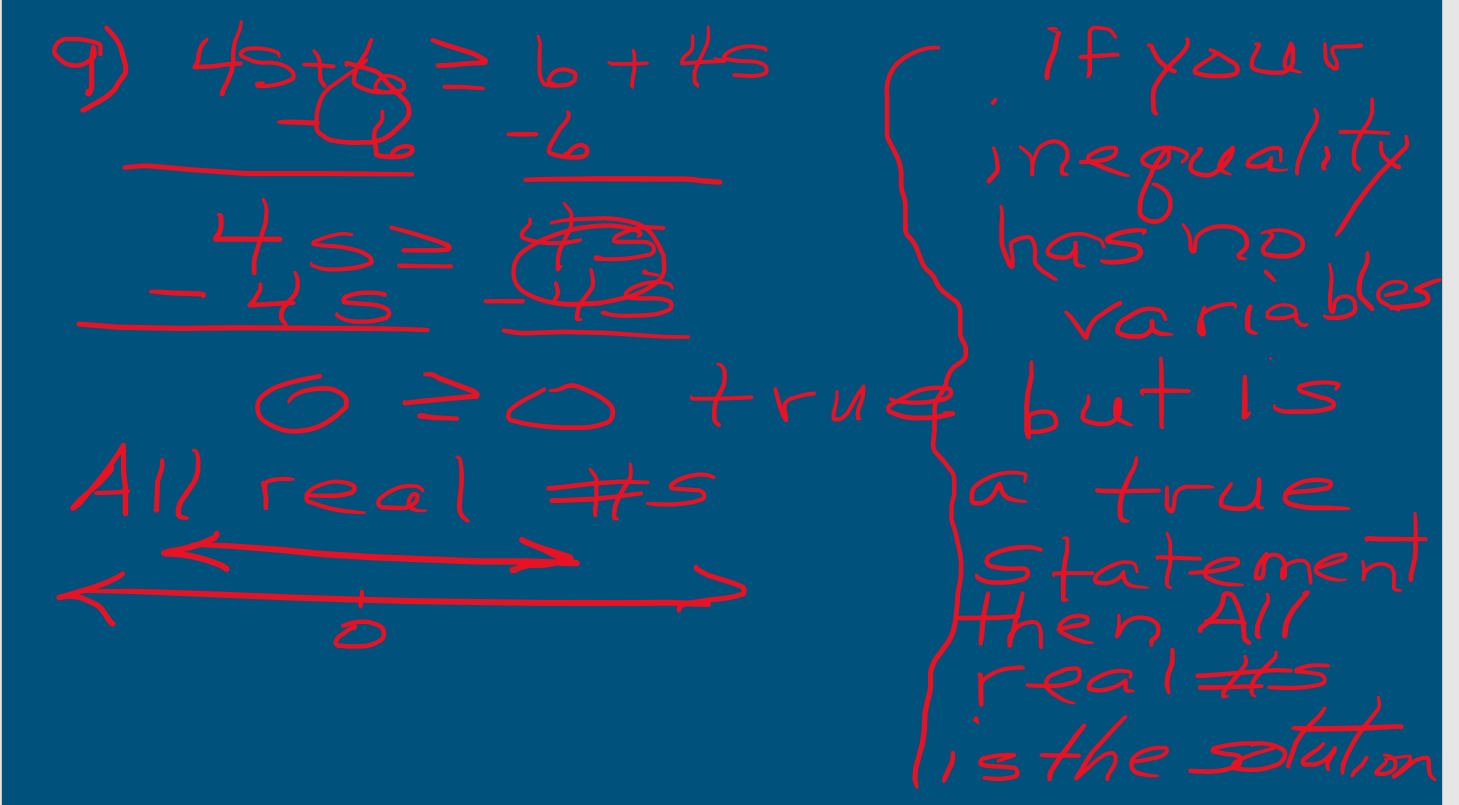 9) 4s+6 ≥ 6 + 4s
-6 -6
4s ≥ 4s
- 4s - 4s
0 ≥ 0 true
All real #s
0
If your
inequality
has no
variables
but is
a true
statement
then All
real #s
is the solution